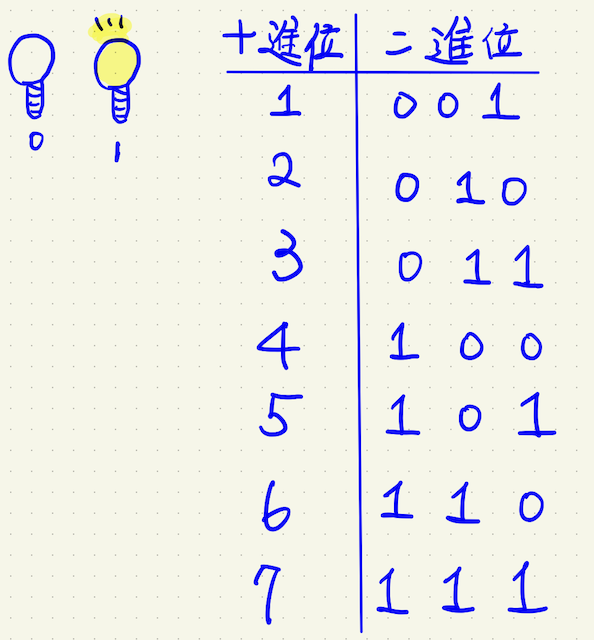 十進位 二進位
0 1
1 0 0 1
2 0 1 0
3 0 1 1
4 1 0 0
5 1 0 1
6 1 1 0
7 1 1 1